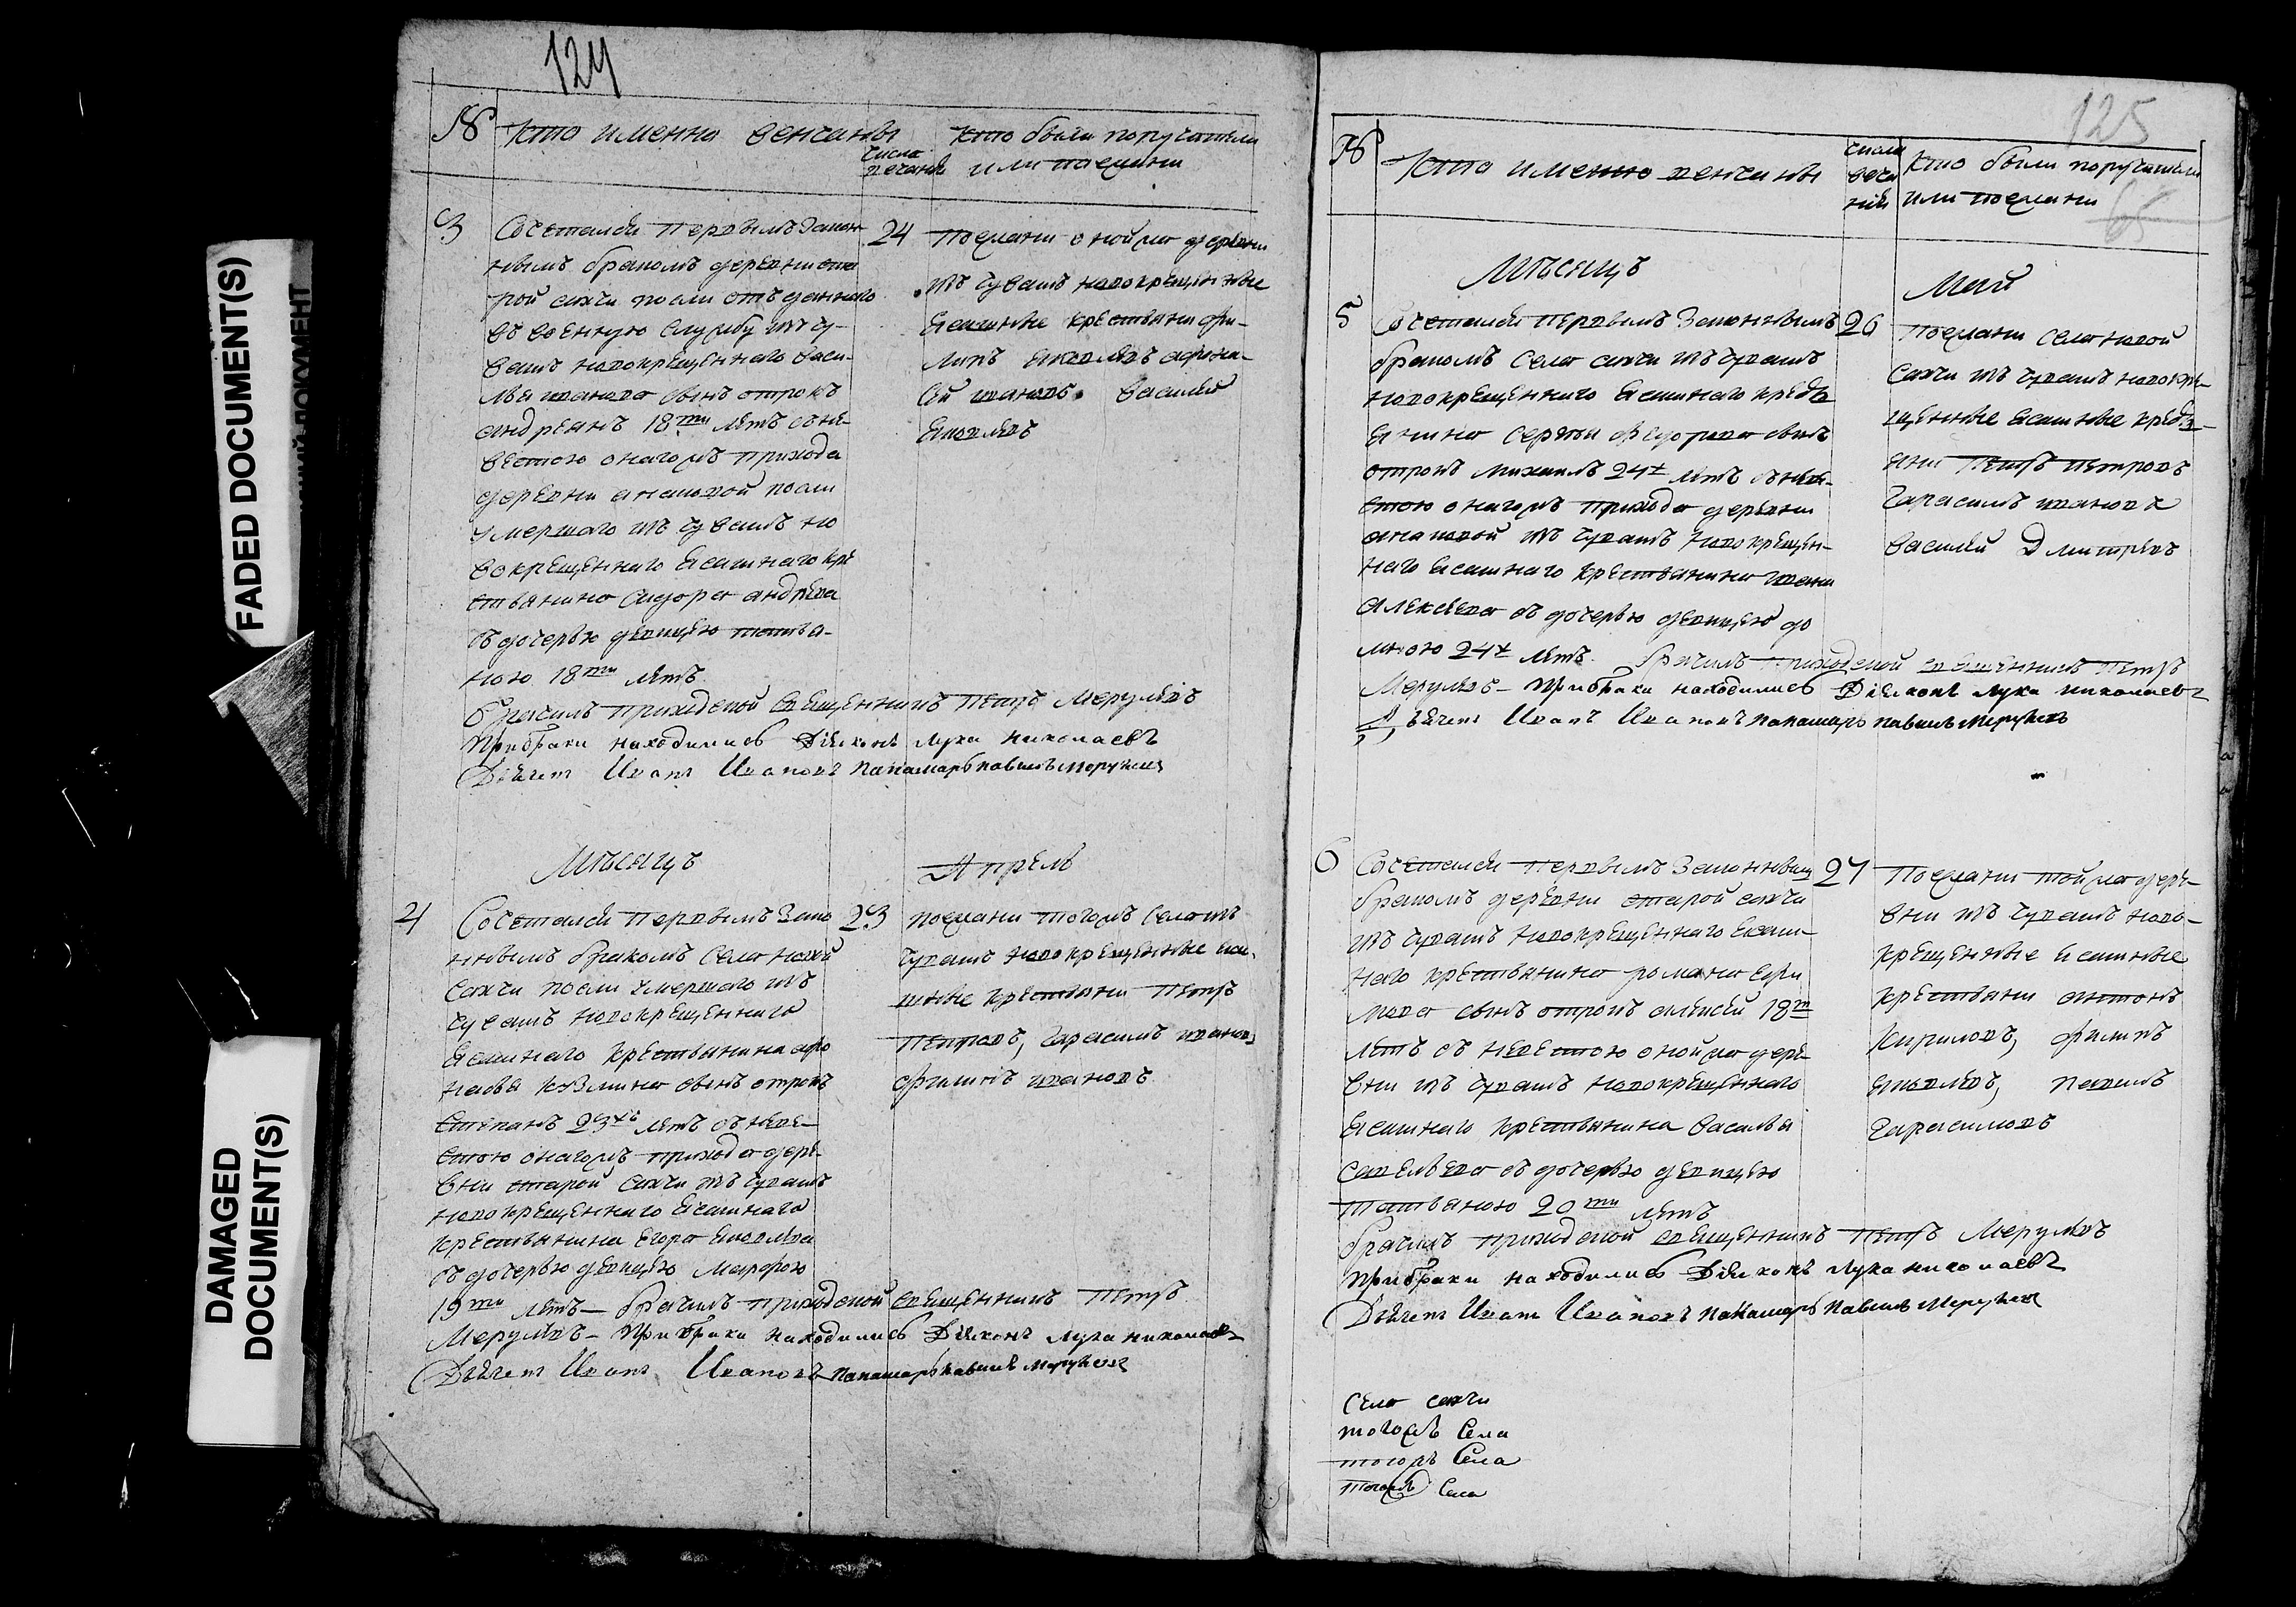 FADED DOCUMENT(S)
DAMAGED
DOCUMENT(S)
124
№ Кто именно венчаны
числа
венчанiй
Кто были поручители
или поезжани
3
Сочетался первымъ закон
нымъ бракомъ деревни ста
рой сахчи посли отъданнаго
въ военную службу изъ чу-
вашъ новокрещеннаго васи-
лья иванова сынъ отрокъ
андреянъ 18ти летъ съ не-
вестою онагожъ прихода
деревни аналовой посли
умершаго изъ чувашъ но
вокрещеннаго ясашнаго кре
стьянина сидора андреева
съ дочерью девицею татья-
ною 18ти летъ
24
Поезжани оной же деревни
изъ чувашъ новокрещенные
ясашные крестьяни фи-
липъ яковлевъ афона-
сей ивановъ. василей
яковлевъ
брачилъ приходской священникъ петръ Мерулевъ
При браки находились Дiаконъ лука николаевъ
Дьячегъ Иванъ Ивановъ панамарь павилъ Мерулевъ
Месяцъ
Апрель
4
Сочетался первымъ зако
ннымъ бракомъ села новой
сахчи посли умершаго изъ
чувашъ новокрещеннаго
ясашнаго крестьянина афо
насья козмина сынъ отрокъ
степанъ 23хъ летъ съ неве-
стою онагожъ прихода дере-
вни старой сахчи изъ чувашъ
новокрещеннаго ясашнаго
крестьянина Егора яковлева
съ дочерью девицею марфою
23
поезжани тогожъ села изъ
чувашъ новокрещенные яса-
шные крестьяни петръ
петровъ, гарасимъ ивановъ
филипъ ивановъ
19ти летъ – брачилъ приходской священникъ петръ
Мерулевъ – При браки находились Дiаконъ лука николаевъ
Дьячегъ Иванъ Ивановъ панамарь павилъ Мерулевъ
125
65
№ Кто именно венчаны
числа
венча
нiй
Кто были поручители
или поезжани
Месяцъ
Май
5
Сочетался первымъ законнымъ
бракомъ села сахчи изъ чувашъ
новокрещеннаго ясашнаго кресть
янина сергея федорова сынъ
отрокъ михаилъ 24х летъ съ неве-
стою онагожъ прихода деревни
аналовой изъ чувашъ новокрещен-
наго ясашнаго крестьянина ивана
алексеева съ дочерью девицею до
мною 24х летъ.
26
поезжани села новой
сахчи изъ чувашъ новокре-
щенные ясашные кресть-
яни петръ петровъ
гарасимъ ивановъ
василей Дмитревъ
брачилъ приходской священникъ петръ
Мерулевъ – При браки находились Дiаконъ лука николаевъ
Дьячегъ Иванъ Ивановъ панамарь павилъ Мерулевъ
6
Сочетался первымъ законнымъ
бракомъ деревни старой сахчи
изъ чувашъ новокрещеннаго ясаш-
наго крестьянина романа ефи
мова сынъ отрокъ алексей 18ти
летъ съ невестою оной же дере-
вни изъ чувашъ новокрещеннаго
ясашнаго крестьянина василья
савельева съ дочерью девицею
татьяною 20ти летъ
27
Поезжани той же дере-
вни изъ чувашъ ново-
крещенные ясашные
крестьяни антонъ
кириловъ, филипъ
яковлевъ, павилъ
гарасимовъ
брачилъ приходской священникъ петръ Мерулевъ
При браки находились Дiаконъ лука николаевъ
Дьячегъ Иванъ Ивановъ панамарь павилъ Мерулевъ
Село сахчи
тогожъ Села
тогожъ Села
тогожъ Села